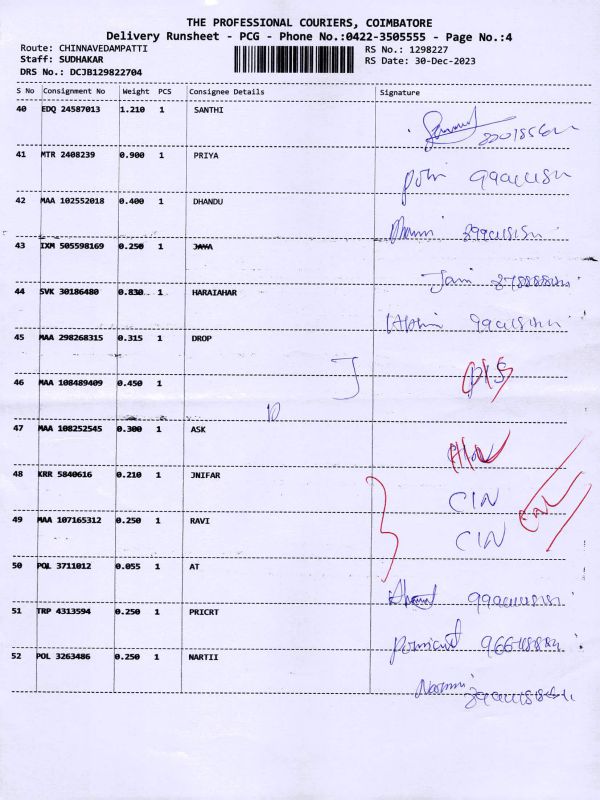 THE PROFESSIONAL COURIERS, COIMBATORE
Delivery Runsheet - PCG - Phone No.:0422-3505555 - Page No.:4
Route: CHINNAVEDAMPATTI RS No.: 1298227
Staff: SUDHAKAR RS Date: 30-Dec-2023
DRS No.: DCJB129822704
S No Consignment No Weight PCS Consignee Details Signature
40 EDQ 24587013 1.210 1 SANTHI
41 MTR 2408239 0.900 1 PRIYA
42 MAA 102552018 0.400 1 DHANDU
43 IXM 505598169 0.250 1 JAWA
Jani
44 SVK 30186480 0.830 1 HARAIAHAR
45 MAA 298268315 0.315 1 DROP
J
46 MAA 108489409 0.450 1
10
47 MAA 108252545 0.300 1 ASK
48 KRR 5840616 0.210 1 JNIFAR
CIN
49 MAA 107165312 0.250 1 RAVI
CIN
50 POL 3711012 0.055 1 AT
51 TRP 4313594 0.250 1 PRICRT
52 POL 3263486 0.250 1 NARTII